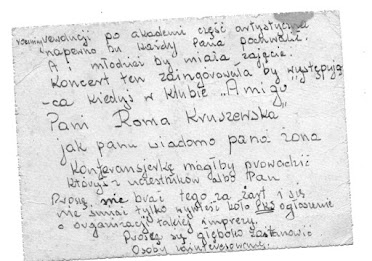 rocznicy rewolucji po akademi część artystyczna
napewno bu każdy Pana pochwalił.
A i młodzież by miała zajęcie.
Koncert ten zaingorowała by występują-
ca kiedyś w klubie "Amigo"
Pani Roma Kruszewska
jak panu wiadomo pana żona
Konferansjerkę mogłby prowadzić
któryś z uczestników albo Pan
Proszę nie brać tego za żart i się
nie śmiać tylko wywieść koło ogłoszenie
o organizacji takiej imprezy.
Proszę się głęboko zastanowić
Osoby zainteresowane.